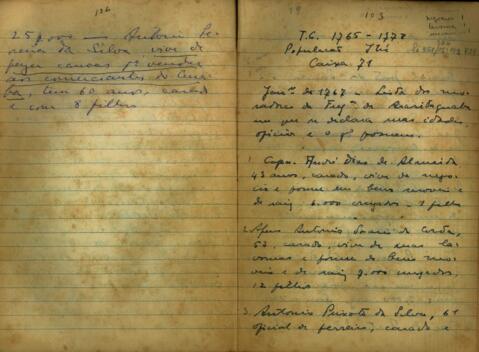 126
25$000 — Antonio Fe
reira da Silva, vive de
fazer canoas pª vender
aos comerciantes de Cuia
bá, tem 60 anos, casado
e com 8 filhos
103
T.C. 1765 - 1778
População Itú
Caixa 71
Janº de 1767 — Lista dos mo
radores da Fregª de Araritaguaba
no que se declara suas idades,
oficios e o qᵉ possuem.
1 Capm. André Dias de Almeida
43 anos, casado, vive de nego
cio e possue em bens moveis e
de raiz 6.000 cruzados - 1 filho
2 Antonio
53, casado, vive de suas la
vouras e possue de bens mo
veis e de raiz 2.000 cruzados,
12 filhos
3 Antonio Peixoto da Silva, 61
oficial de ferreiro, casado e